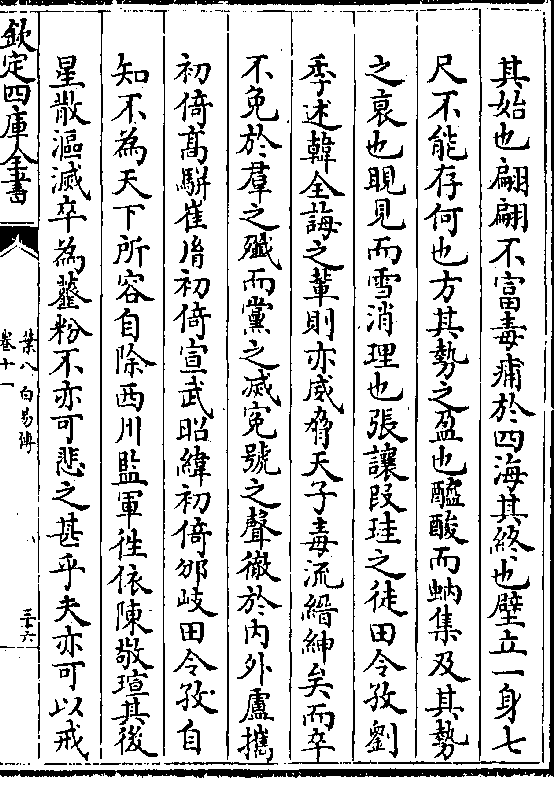 其始也翩翩不富毒痡於四海其終也壁立一身七
尺不能存何也方其勢之盈也醯酸而蚋集及其勢
之衰也睍見而雪消理也張讓段珪之徒田令孜劉
季述韓全誨之輩則亦威脅天子毒流縉紳矣而卒
不免於羣之殱而黨之滅寃號之聲徹於内外盧攜
初倚髙駢崔㣧初倚宣武昭緯初倚邠岐田令孜自
知不為天下所容自除西川監軍徃依陳敬瑄其後
星散漚滅卒為虀粉不亦可悲之甚乎夫亦可以戒
欽定四庫全書
葉八白易傳
卷十一
三十六